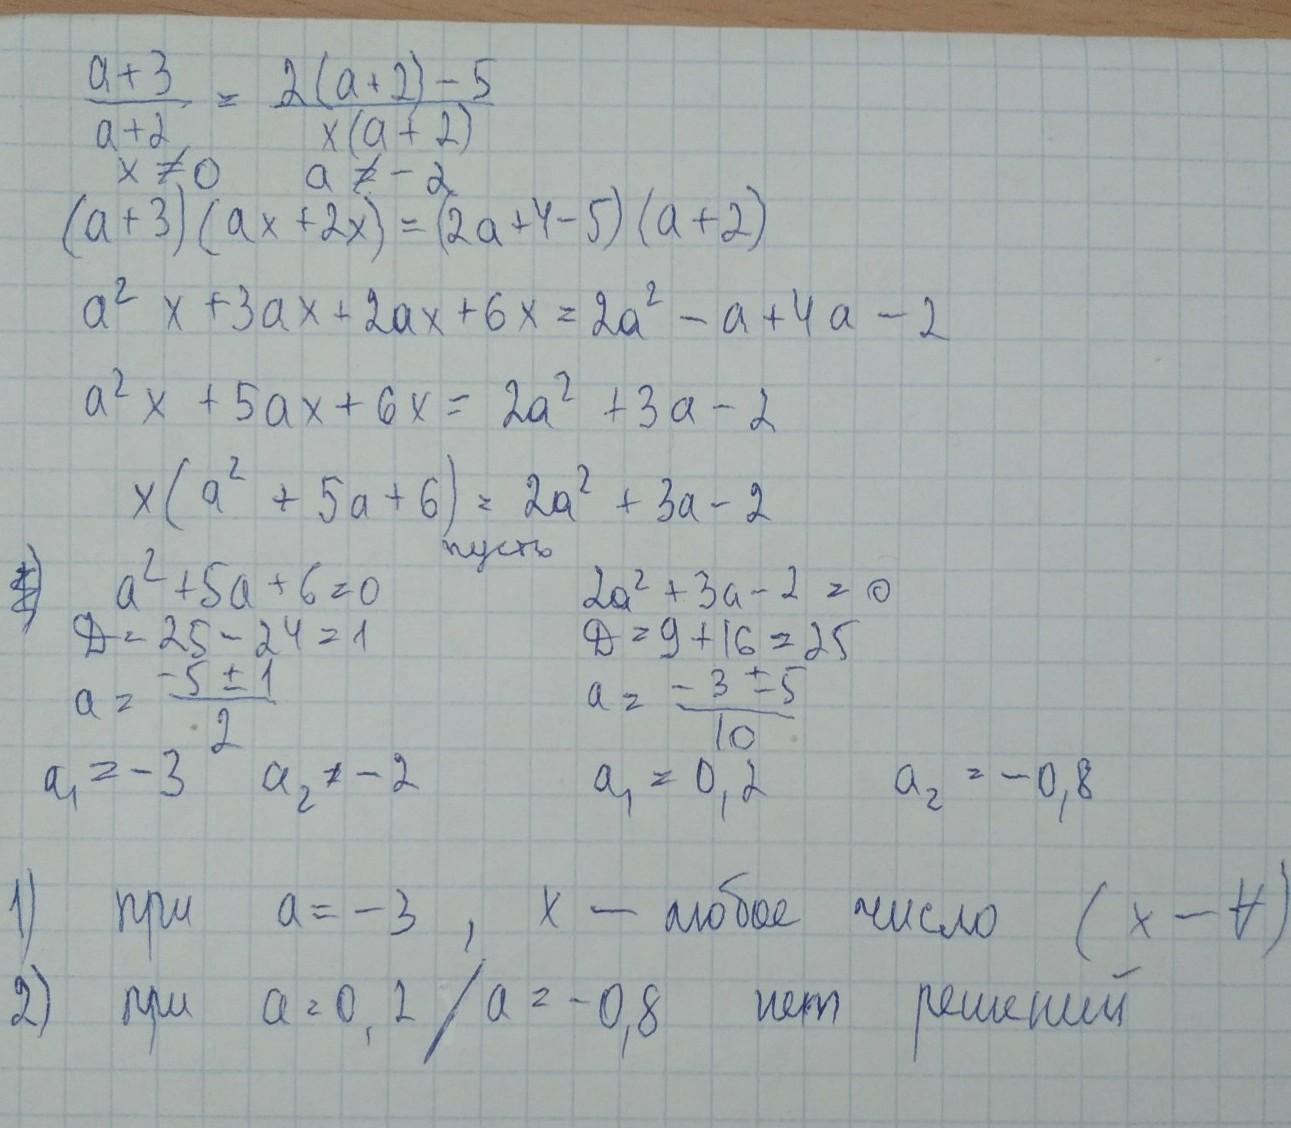 a+3 / a+2 = 2(a+2)-5 / x(a+2)
x≠0 a≠-2
(a+3)(ax+2x)=(2a+4-5)(a+2)
a² x+3ax+2ax+6x=2a²-a+4a-2
a²x+5ax+6x=2a²+3a-2
x(a²+5a+6)=2a²+3a-2
пусть
a²+5a+6=0 2a²+3a-2=0
D=25-24=1 D=9+16=25
a=-5±1 / 2 a=-3±5 / 10
a₁=-3 a₂≠-2 a₁=0,2 a₂=-0,8
1) при a=-3, x - любое число (x-∀)
2) при a=0,2/a=-0,8 нет решений